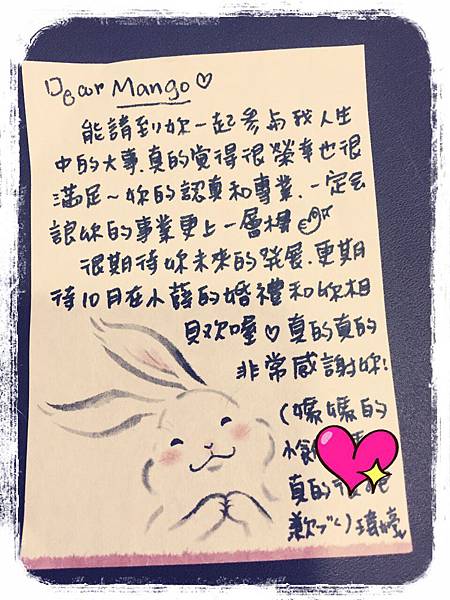 Dear Mango♡
能請到妳一起參與我人生
中的大事,真的覺得很榮幸也很
滿足~妳的認真和專業,一定會
讓妳的事業更上一層樓
很期待妳未來的發展,更期
待10月在小薛的婚禮和妳相
見歡喔♡真的真的
非常感謝妳!
(媽媽的
小
真的很
歉